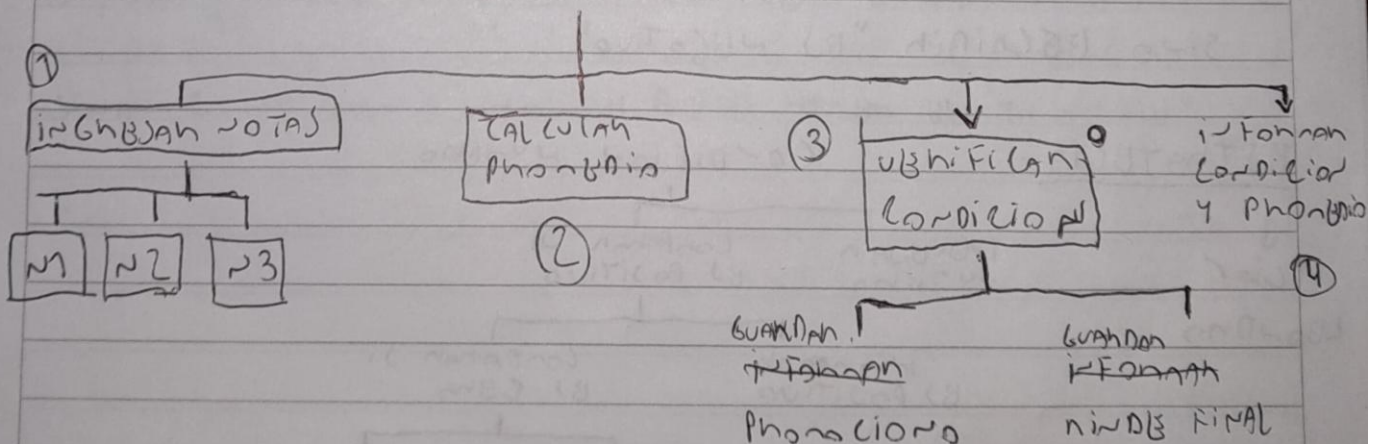 1
INGRESAR NOTAS
N1 N2 N3
CALCULAR
PROMEDIO
2
3
VERIFICAR
CONDICION
INFORMAR
CONDICION
Y PROMEDIO
4
GUARDAR
INFORMAR
PROMOCIONO
GUARDAR
INFORMAR
RINDE FINAL